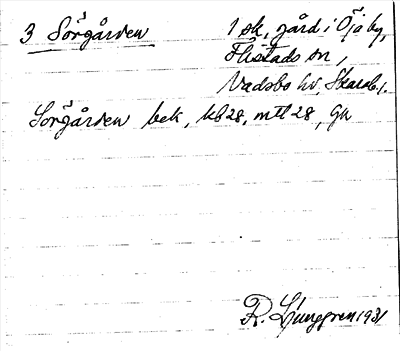 3 Sörgården 1 sk, gård i Öja by,
Flistads sn,
Vadsbo hd, Skarab.l.
Sörgården bek, kb 28, mtl 28, Gk
R. Ljunggren 1931